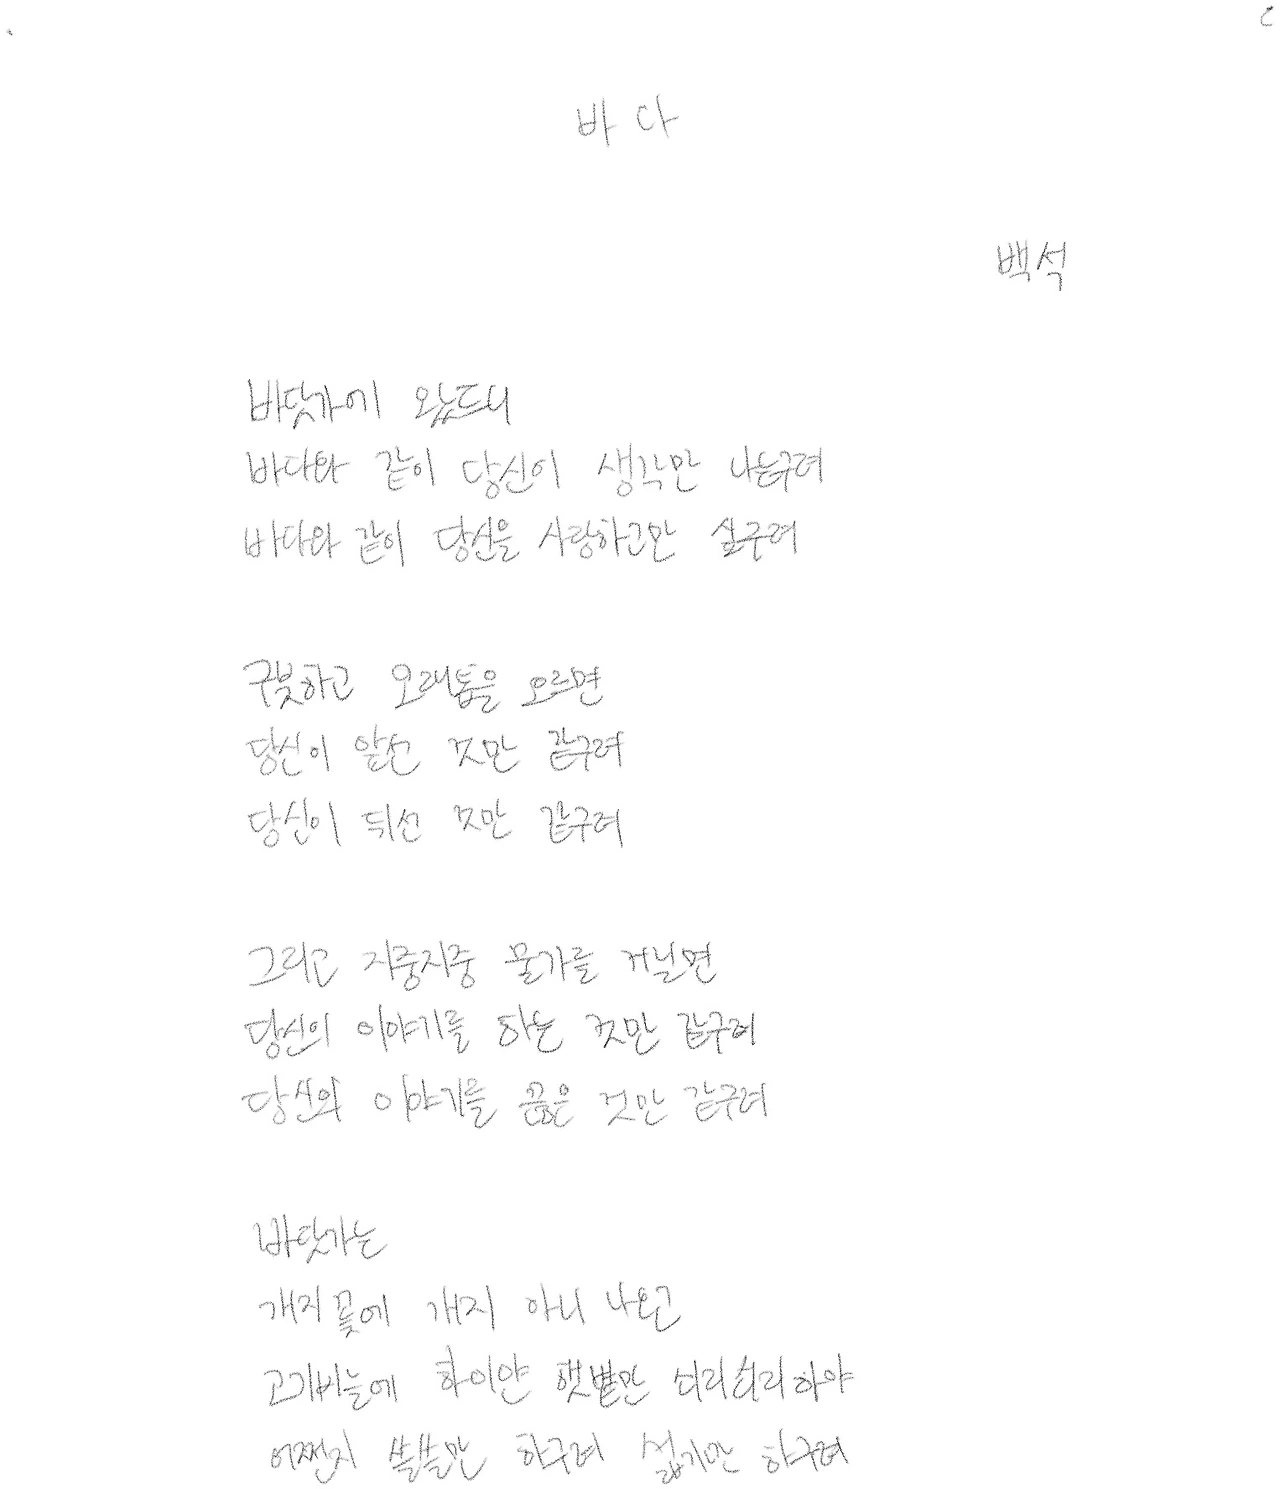 바다
백석
바닷가에 왔드니
바다와 같이 당신이 생각만 나는구려
바다와 같이 당신을 사랑하고만 싶구려
구붓하고 모래톱을 오르면
당신이 앞선 것만 같구려
당신이 뒤선 것만 같구려
그리고 지중지중 물가를 거닐면
당신이 이야기를 하는 것만 같구려
당신이 이야기를 끊은 것만 같구려
바닷가는
개지꽃에 개지 아니 나오고
고기비늘에 하이얀 햇볕만 쇠리쇠리하야
어쩐지 쓸쓸만 하구려 섧기만 하구려